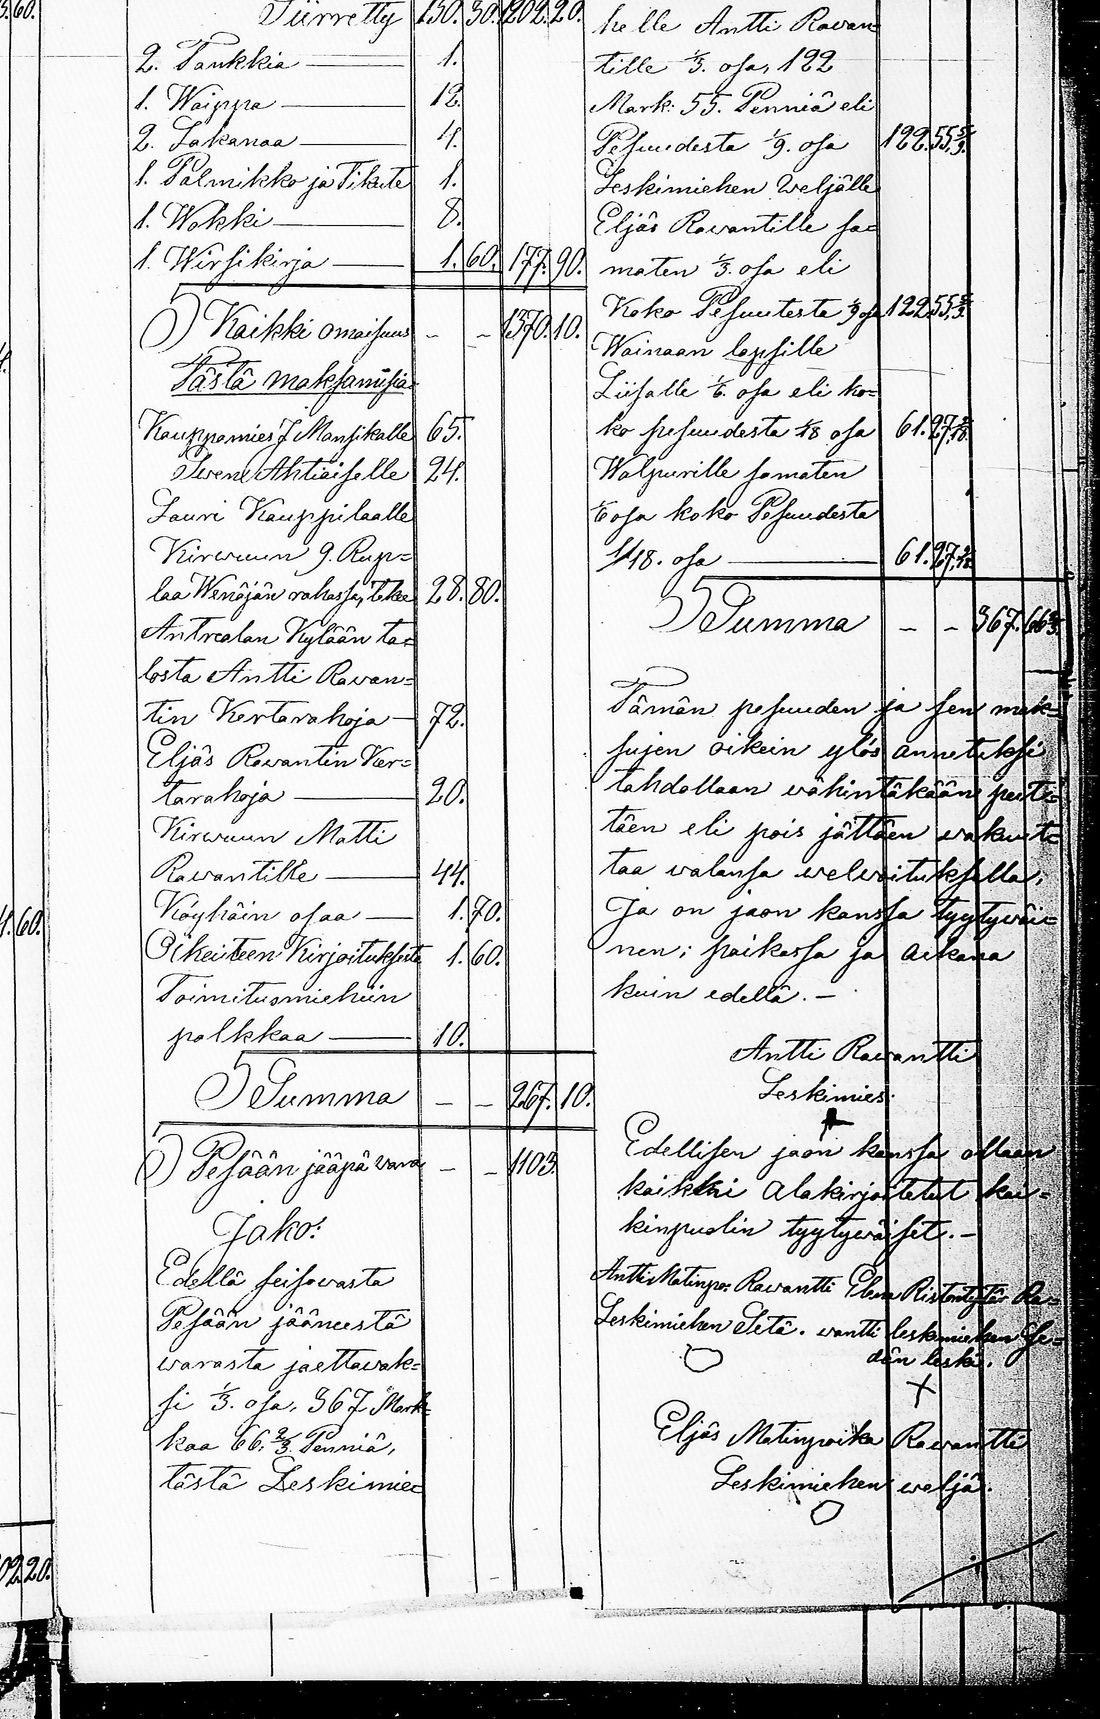 3.60.
Siirretty 150. 30. 1202. 20.
2. Pankkia — 1.
1. Waippa — 12.
2. Lakanaa — 4.
1. Palmikko ja Tikute 1.
1. Wokki — 8.
1. Wirsikirja — 1. 60. 177. 90.
Kaikki omaisuus - - 1370. 10.
Tästä maksamisia
Kauppamies J Mansikalle 65.
Iwene Ahtiaiselle 24.
Lauri Kauppilaalle
Kirwuun 9. Rup=
laa Wenäjän rahassa, tekee 28. 80.
Antrealan Kylään ta=
losta Antti Rawan=
tin Kertarahoja — 72.
Eljäs Rawantin Ker=
tarahoja — 20.
Kirwuun Matti
Rawantille — 44.
Köyhäin osaa — 1. 70.
Oikeiteen Kirjoituksesta 1. 60.
Toimitusmiehiin
palkkaa — 10.
Summa - - 267. 10.
Pesään jääpä wara - - 1103.
Jako:
Edellä seisowasta
Pesään jääneestä
warasta jaettawak=
si 1/3. osa, 367 Mark=
kaa 66. 2/3. Penniä,
tästä Leskimie=
4.60.
02.20.
helle Antti Rawan=
tille 1/3. osa, 122
Mark: 55. Penniä eli
Pesuudesta 1/9. osa 122. 55. 5/9.
Leskimiehen weljälle
Eljäs Rawantille sa=
maten 1/3. osa eli
Koko Pesuutesta 1/9 osa 122. 55. 5/9.
Wainaan lapsille
Liisalle 1/6. osa eli ko=
ko pesuudesta 1/18 osa 61. 27.
Walpurille samaten
1/6 osa koko Pesuudesta
1/18. osa — 61. 27.
Summa - - 367. 66 2/3.
Tämän pesuuden ja sen mak=
sujen oikein ylös annetuksi
tahdollaan wähintäkään peit=
täen eli pois jättäen wakuut=
taa walansa welwoituksella,
Ja on jaon kanssa tyytywäi=
nen; paikassa ja aikana
kuin edellä. —
Antti Rawantti
Leskimies.
Edellisen jaon kanssa ollaan
kaikki alakirjoitetut kai=
kinpuolin tyytywäiset. —
Antti Matinpo: Rawantti Elena Ristontytär Ra=
Leskimiehen Setä. wantti leskimiehen Se=
dän leski.
Eljäs Matinpoika Rawantti
Leskimiehen weljä.